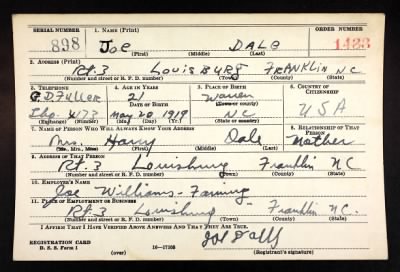 SERIAL NUMBER 1. NAME (Print) ORDER NUMBER
898 Joe DALE 1433
(First) (Middle) (Last)
2. ADDRESS (Print)
Rt. 3 LOUISBURG FRANKLIN N C
(Number and street or R. F. D. number) (Town) (County) (State)
3. TELEPHONE 4. AGE IN YEARS 5. PLACE OF BIRTH 6. COUNTRY OF CITIZENSHIP
G. D. Fuller 21 Warren
DATE OF BIRTH (Town or county) USA
May 20 1919 N C
(Exchange) (No.) (Mo.) (Day) (Yr.) (State or country)
7. NAME OF PERSON WHO WILL ALWAYS KNOW YOUR ADDRESS 8. RELATIONSHIP OF THAT PERSON
Mrs. Harry Dale Mother
(Mr., Mrs., Miss) (First) (Middle) (Last)
9. ADDRESS OF THAT PERSON
Rt. 3 Louisburg Franklin N C
(Number and street or R. F. D. number) (Town) (County) (State)
10. EMPLOYER'S NAME
Joe Williams - Farming
11. PLACE OF EMPLOYMENT OR BUSINESS
Rt-3 Louisburg Franklin N C.
(Number and street or R. F. D. number) (Town) (County) (State)
I AFFIRM THAT I HAVE VERIFIED ABOVE ANSWERS AND THAT THEY ARE TRUE.
REGISTRATION CARD
D. S. S. Form 1 (over) 16—17105 (Registrant's signature)